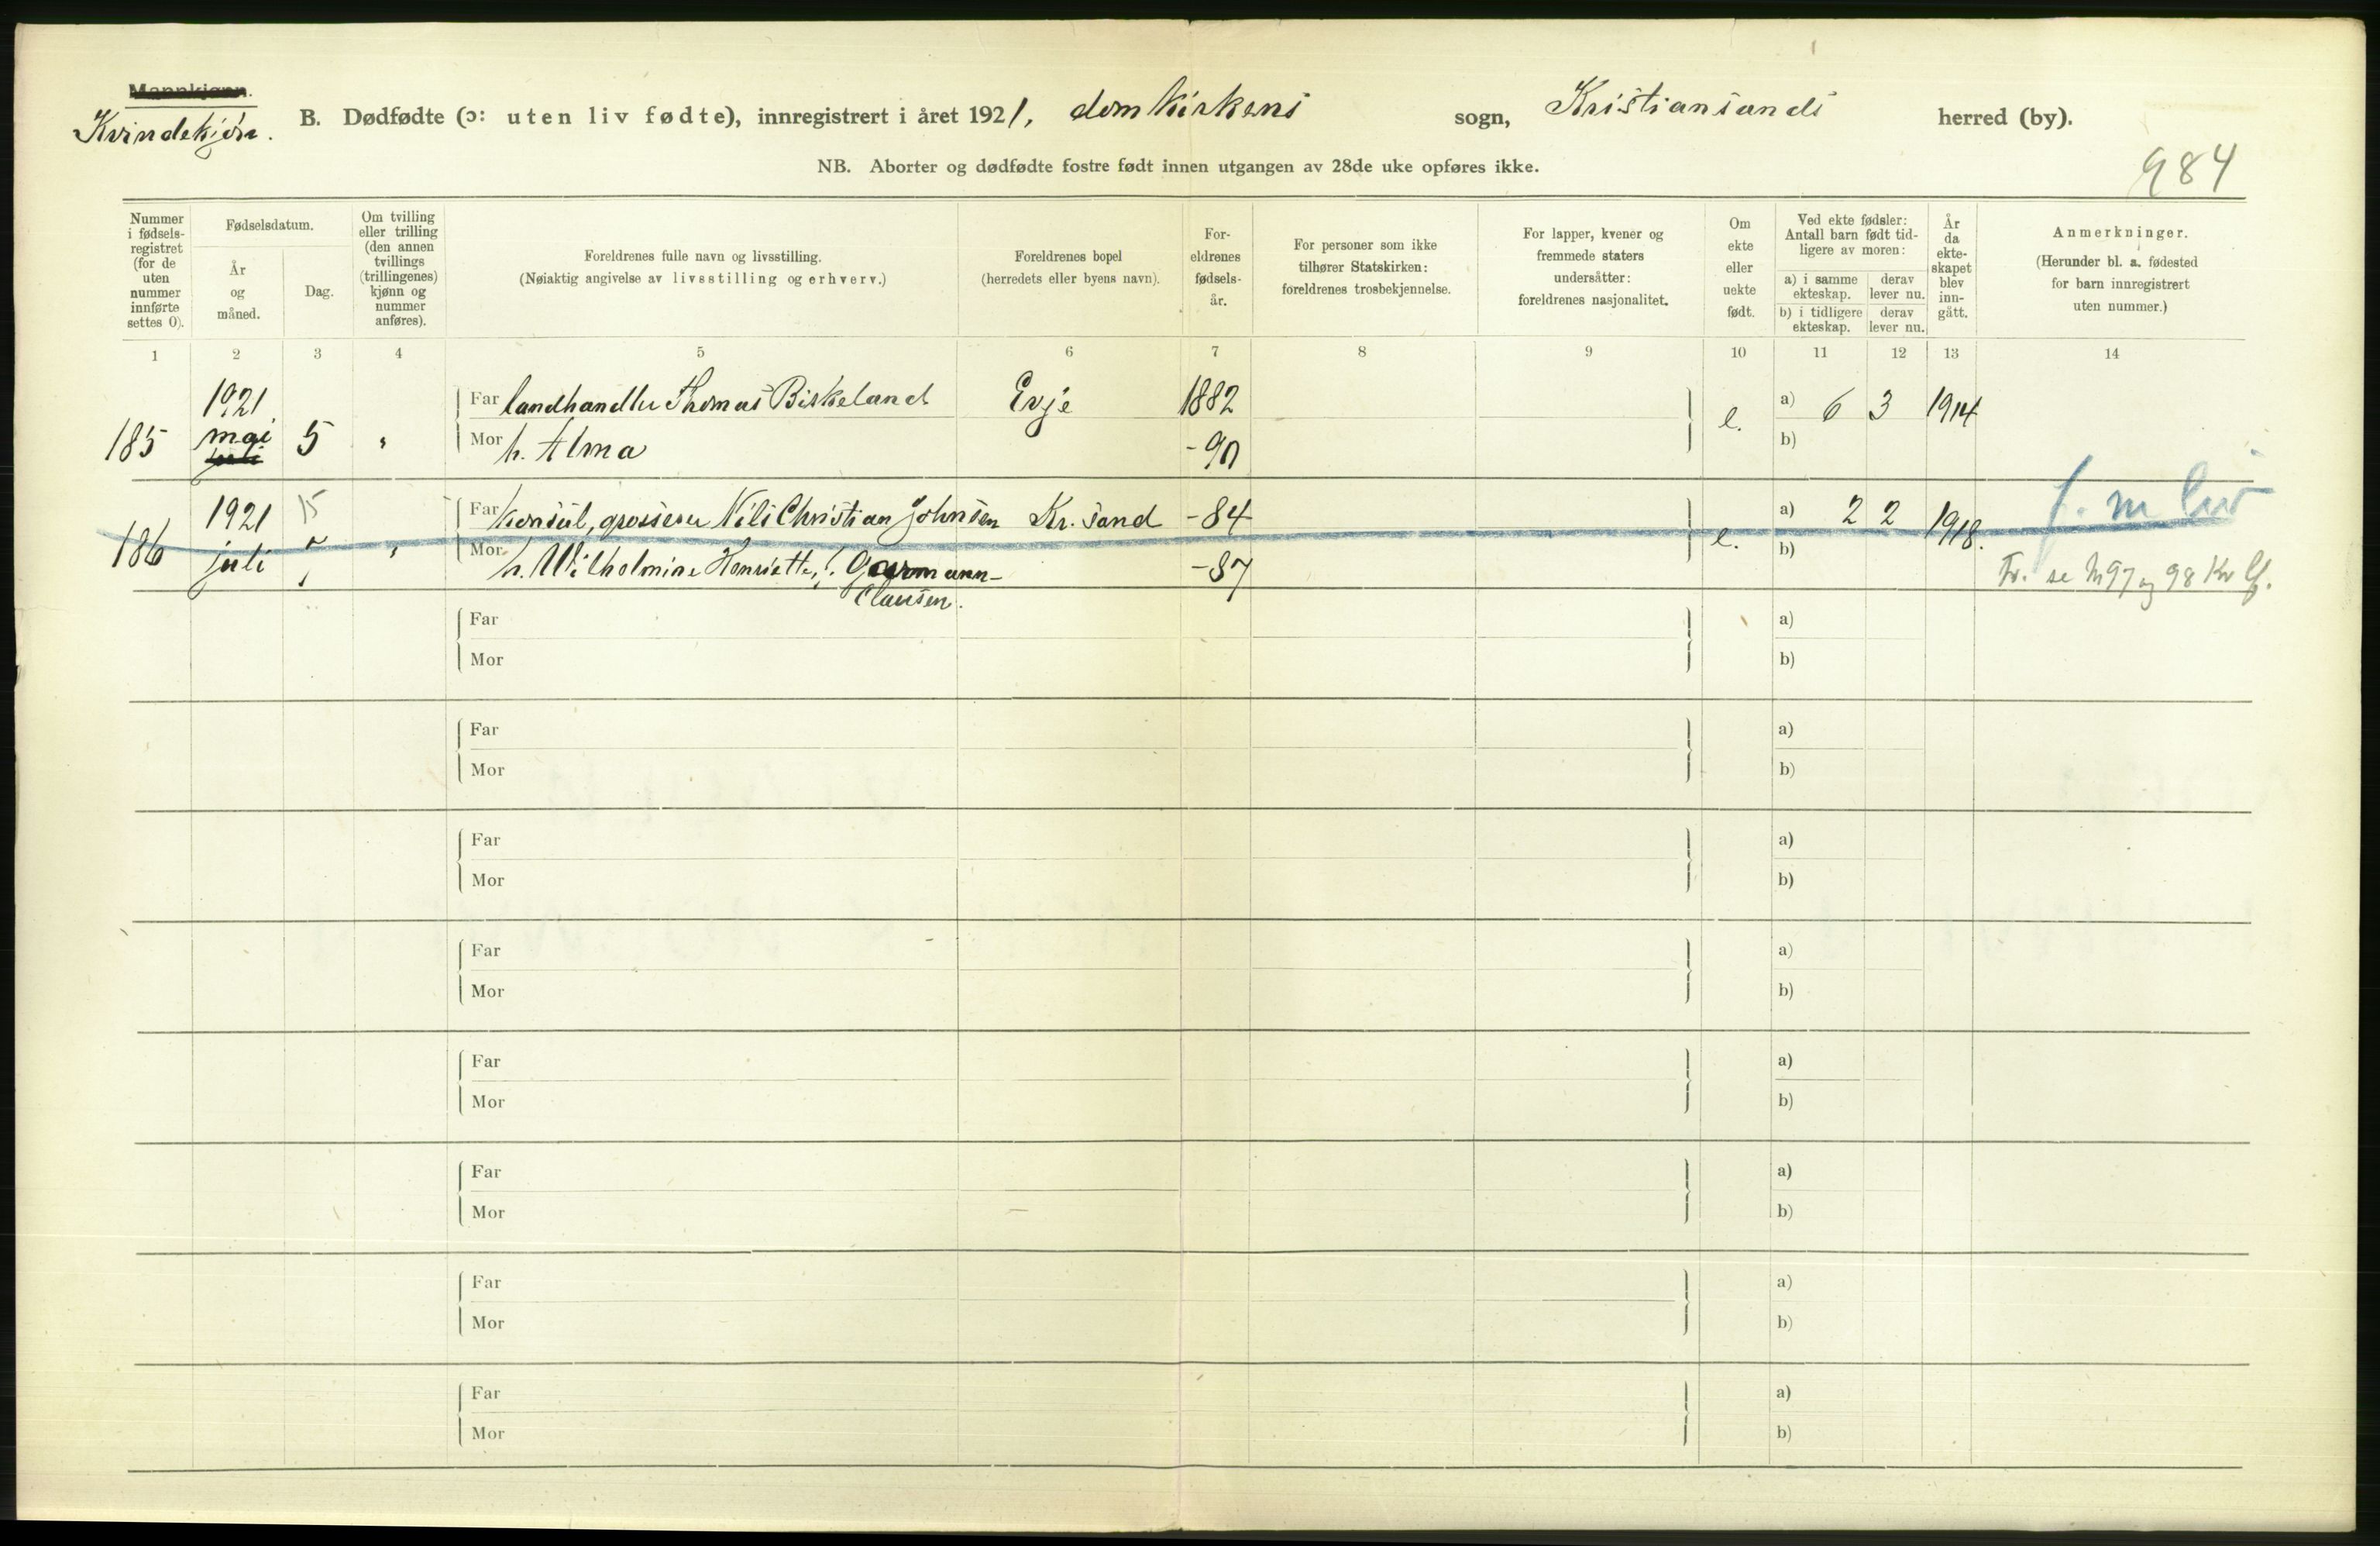 Mannkjønn.
Kvindekjøn.
B. Dødfødte (ɔ: uten liv fødte), innregistrert i året 1921, domkirkens sogn, Kristiansands herred (by).
NB. Aborter og dødfødte fostre født innen utgangen av 28de uke opføres ikke.
984
Nummer i fødsels-registret (for de uten nummer innførte settes 0).
Fødselsdatum.
År og måned.
Dag.
Om tvilling eller trilling (den annen tvillings (trillingenes) kjønn og nummer anføres).
Foreldrenes fulle navn og livsstilling.
(Nøiaktig angivelse av livsstilling og erhverv.)
Foreldrenes bopel
(herredets eller byens navn).
For-eldrenes fødsels-år.
For personer som ikke tilhører Statskirken: foreldrenes trosbekjennelse.
For lapper, kvener og fremmede staters undersåtter: foreldrenes nasjonalitet.
Om ekte eller uekte født.
Ved ekte fødsler: Antall barn født tid-ligere av moren:
a) i samme ekteskap.
derav lever nu.
b) i tidligere ekteskap.
derav lever nu.
År da ekte-skapet blev inn-gått.
Anmerkninger.
(Herunder bl. a. fødested for barn innregistrert uten nummer.)
1 2 3 4 5 6 7 8 9 10 11 12 13 14
1921 Far landhandler Thomas Birkeland Evje 1882 a) 6 3 1914
185 mai 5 " Mor h. Alma -90 e. b)
juli
1921 15 Far Konsul, grosserer Nils Christian Johnsen Kr. sand -84 a) 2 2 1918. f. m liv
186 juli 5 " Mor h. Wilhelmine Henriette, f. Garmann- -87 e. b)
Clausen.
Fv. se M97 og 98 Kr
Far a)
Mor b)
Far a)
Mor b)
Far a)
Mor b)
Far a)
Mor b)
Far a)
Mor b)
Far a)
Mor b)
Far a)
Mor b)
Far a)
Mor b)